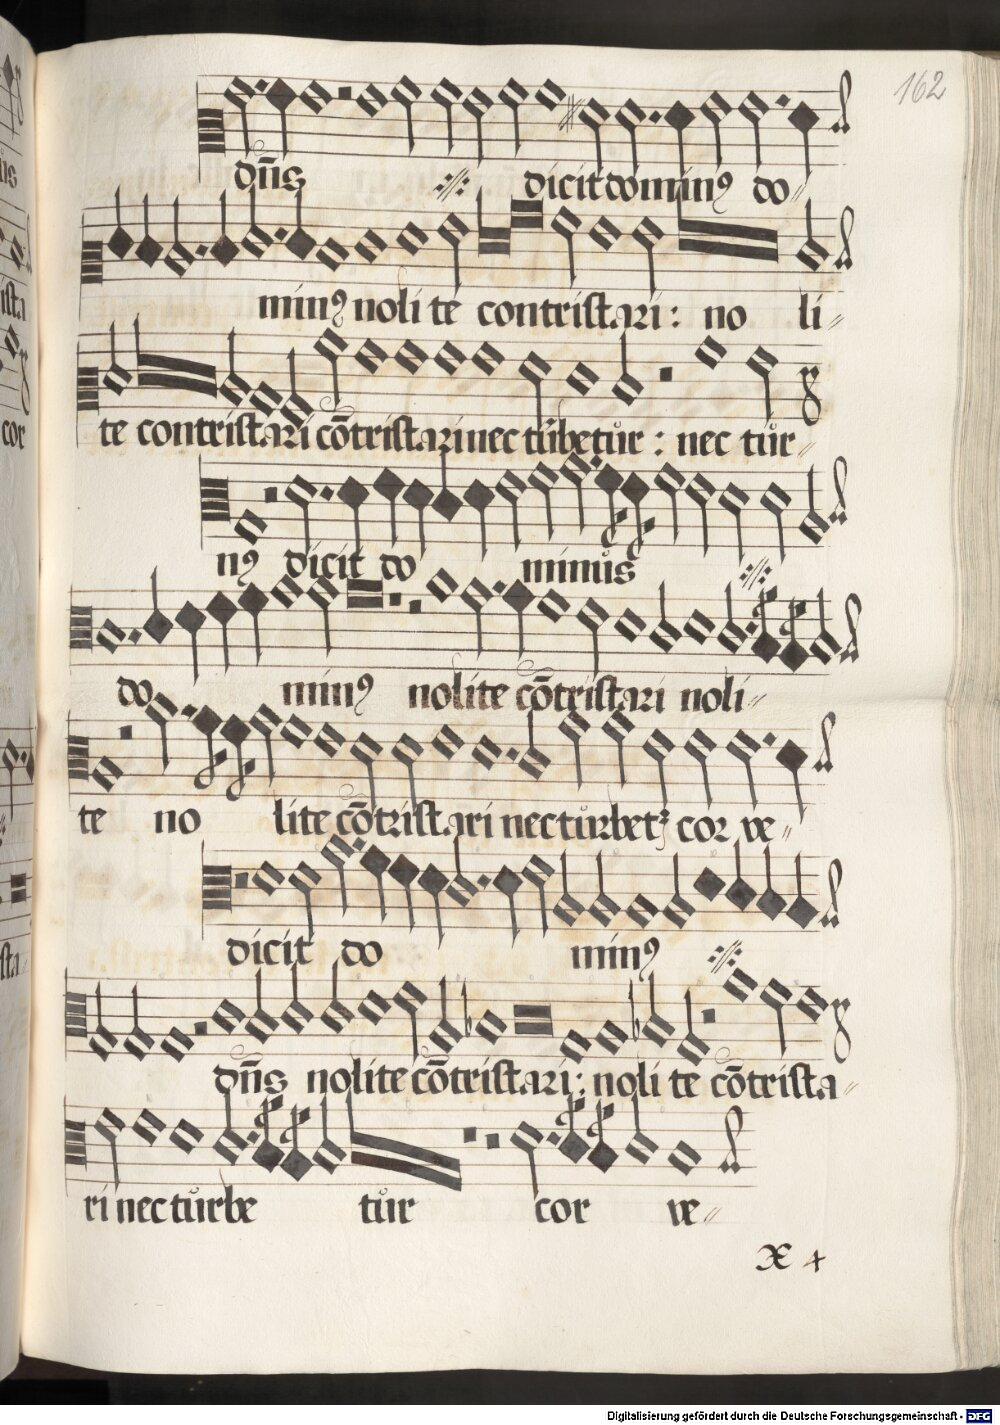 162
dn̄s ·//· dicit dominꝰ do//
minꝰ noli te contristari : no li//
te contristari cōtristari nec turbetůr : nec tůr//
nꝰ dicit do minůs ·//·
do minꝰ nolite cōtristari noli//
te no lite cōtristari nec tůrbetꝫ cor ve//
dicit do minꝰ ·//·
dn̄s nolite cōtristari : noli te cōtrista//
ri nec tůrbe tůr cor ve//
X 4
Digitalisierung gefördert durch die Deutsche Forschungsgemeinschaft - DFG